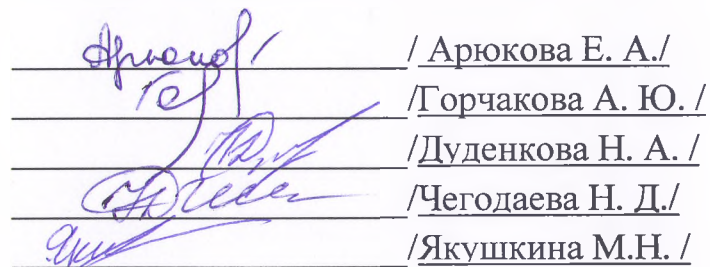 / Арюкова Е. А./
/Горчакова А. Ю. /
/Дуденкова Н. А. /
/Чегодаева Н. Д./
/Якушкина М.Н. /